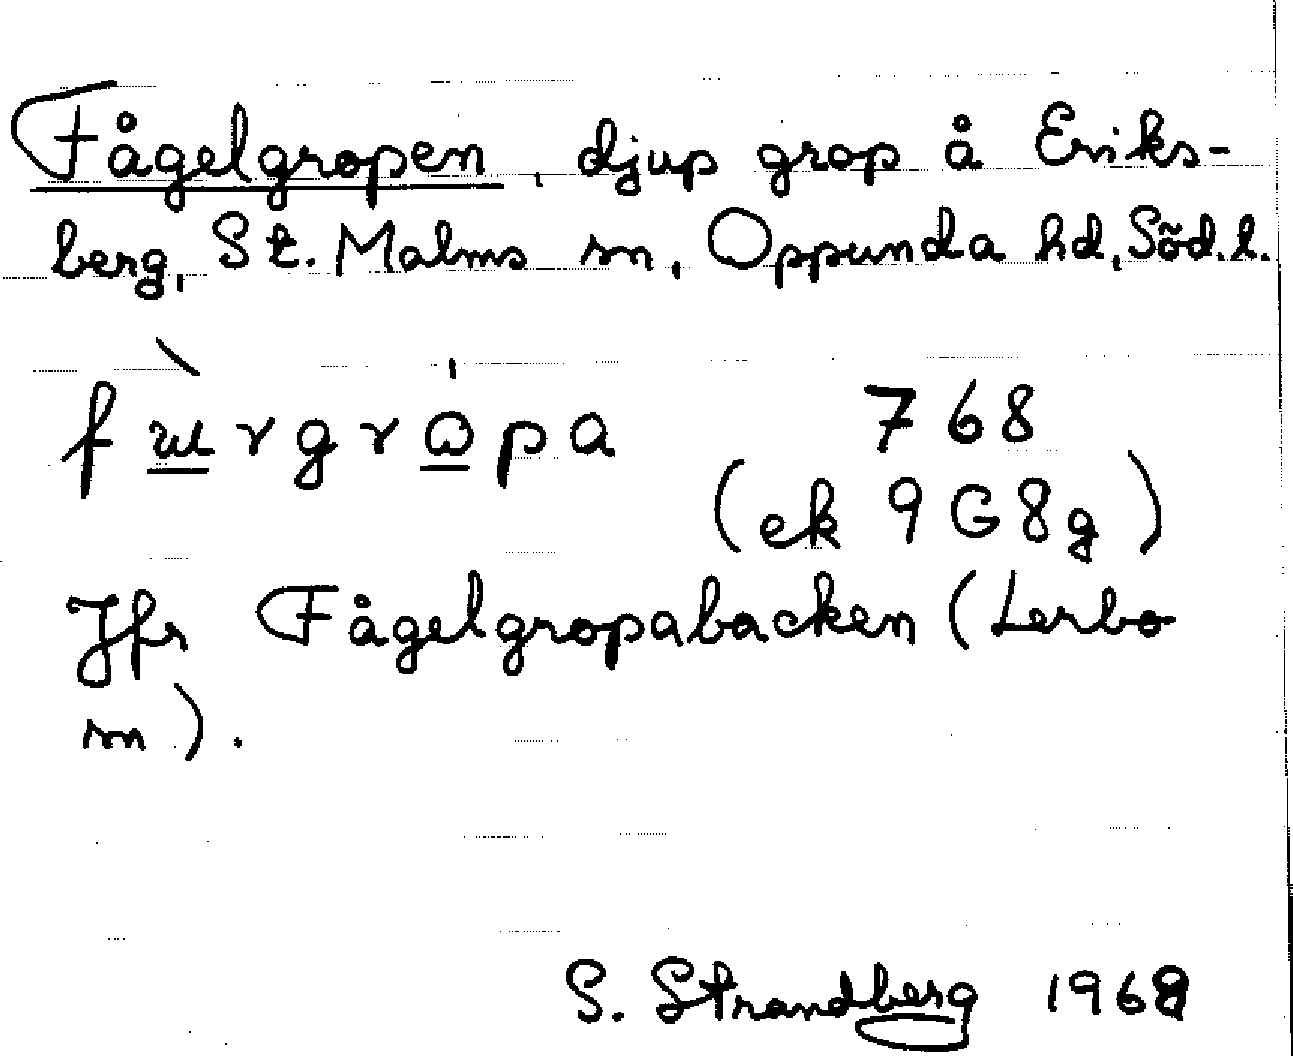 Fågelgropen, djup grop å Eriks-
berg, St. Malms sn, Oppunda hd, Söd.l.
768
(ek 9G8g)
Jfr Fågelgropabacken (Lerbo
sn).
S. Strandberg